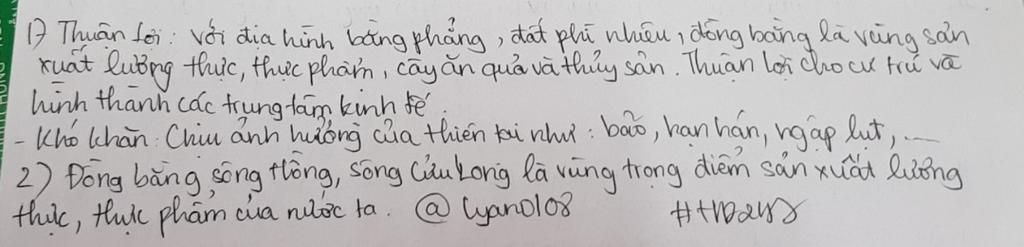 1) Thuận lợi: với địa hình bằng phẳng, đất phì nhiêu, đồng bằng là vùng sản
xuất lương thực, thực phẩm, cây ăn quả và thủy sản. Thuận lợi cho cư trú và
hình thành các trung tâm kinh tế.
- Khó khăn: Chịu ảnh hưởng của thiên tai như: bão, hạn hán, ngập lụt, ...
2) Đồng bằng sông Hồng, sông Cửu Long là vùng trọng điểm sản xuất lương
thực, thực phẩm của nước ta. @ Cyano108